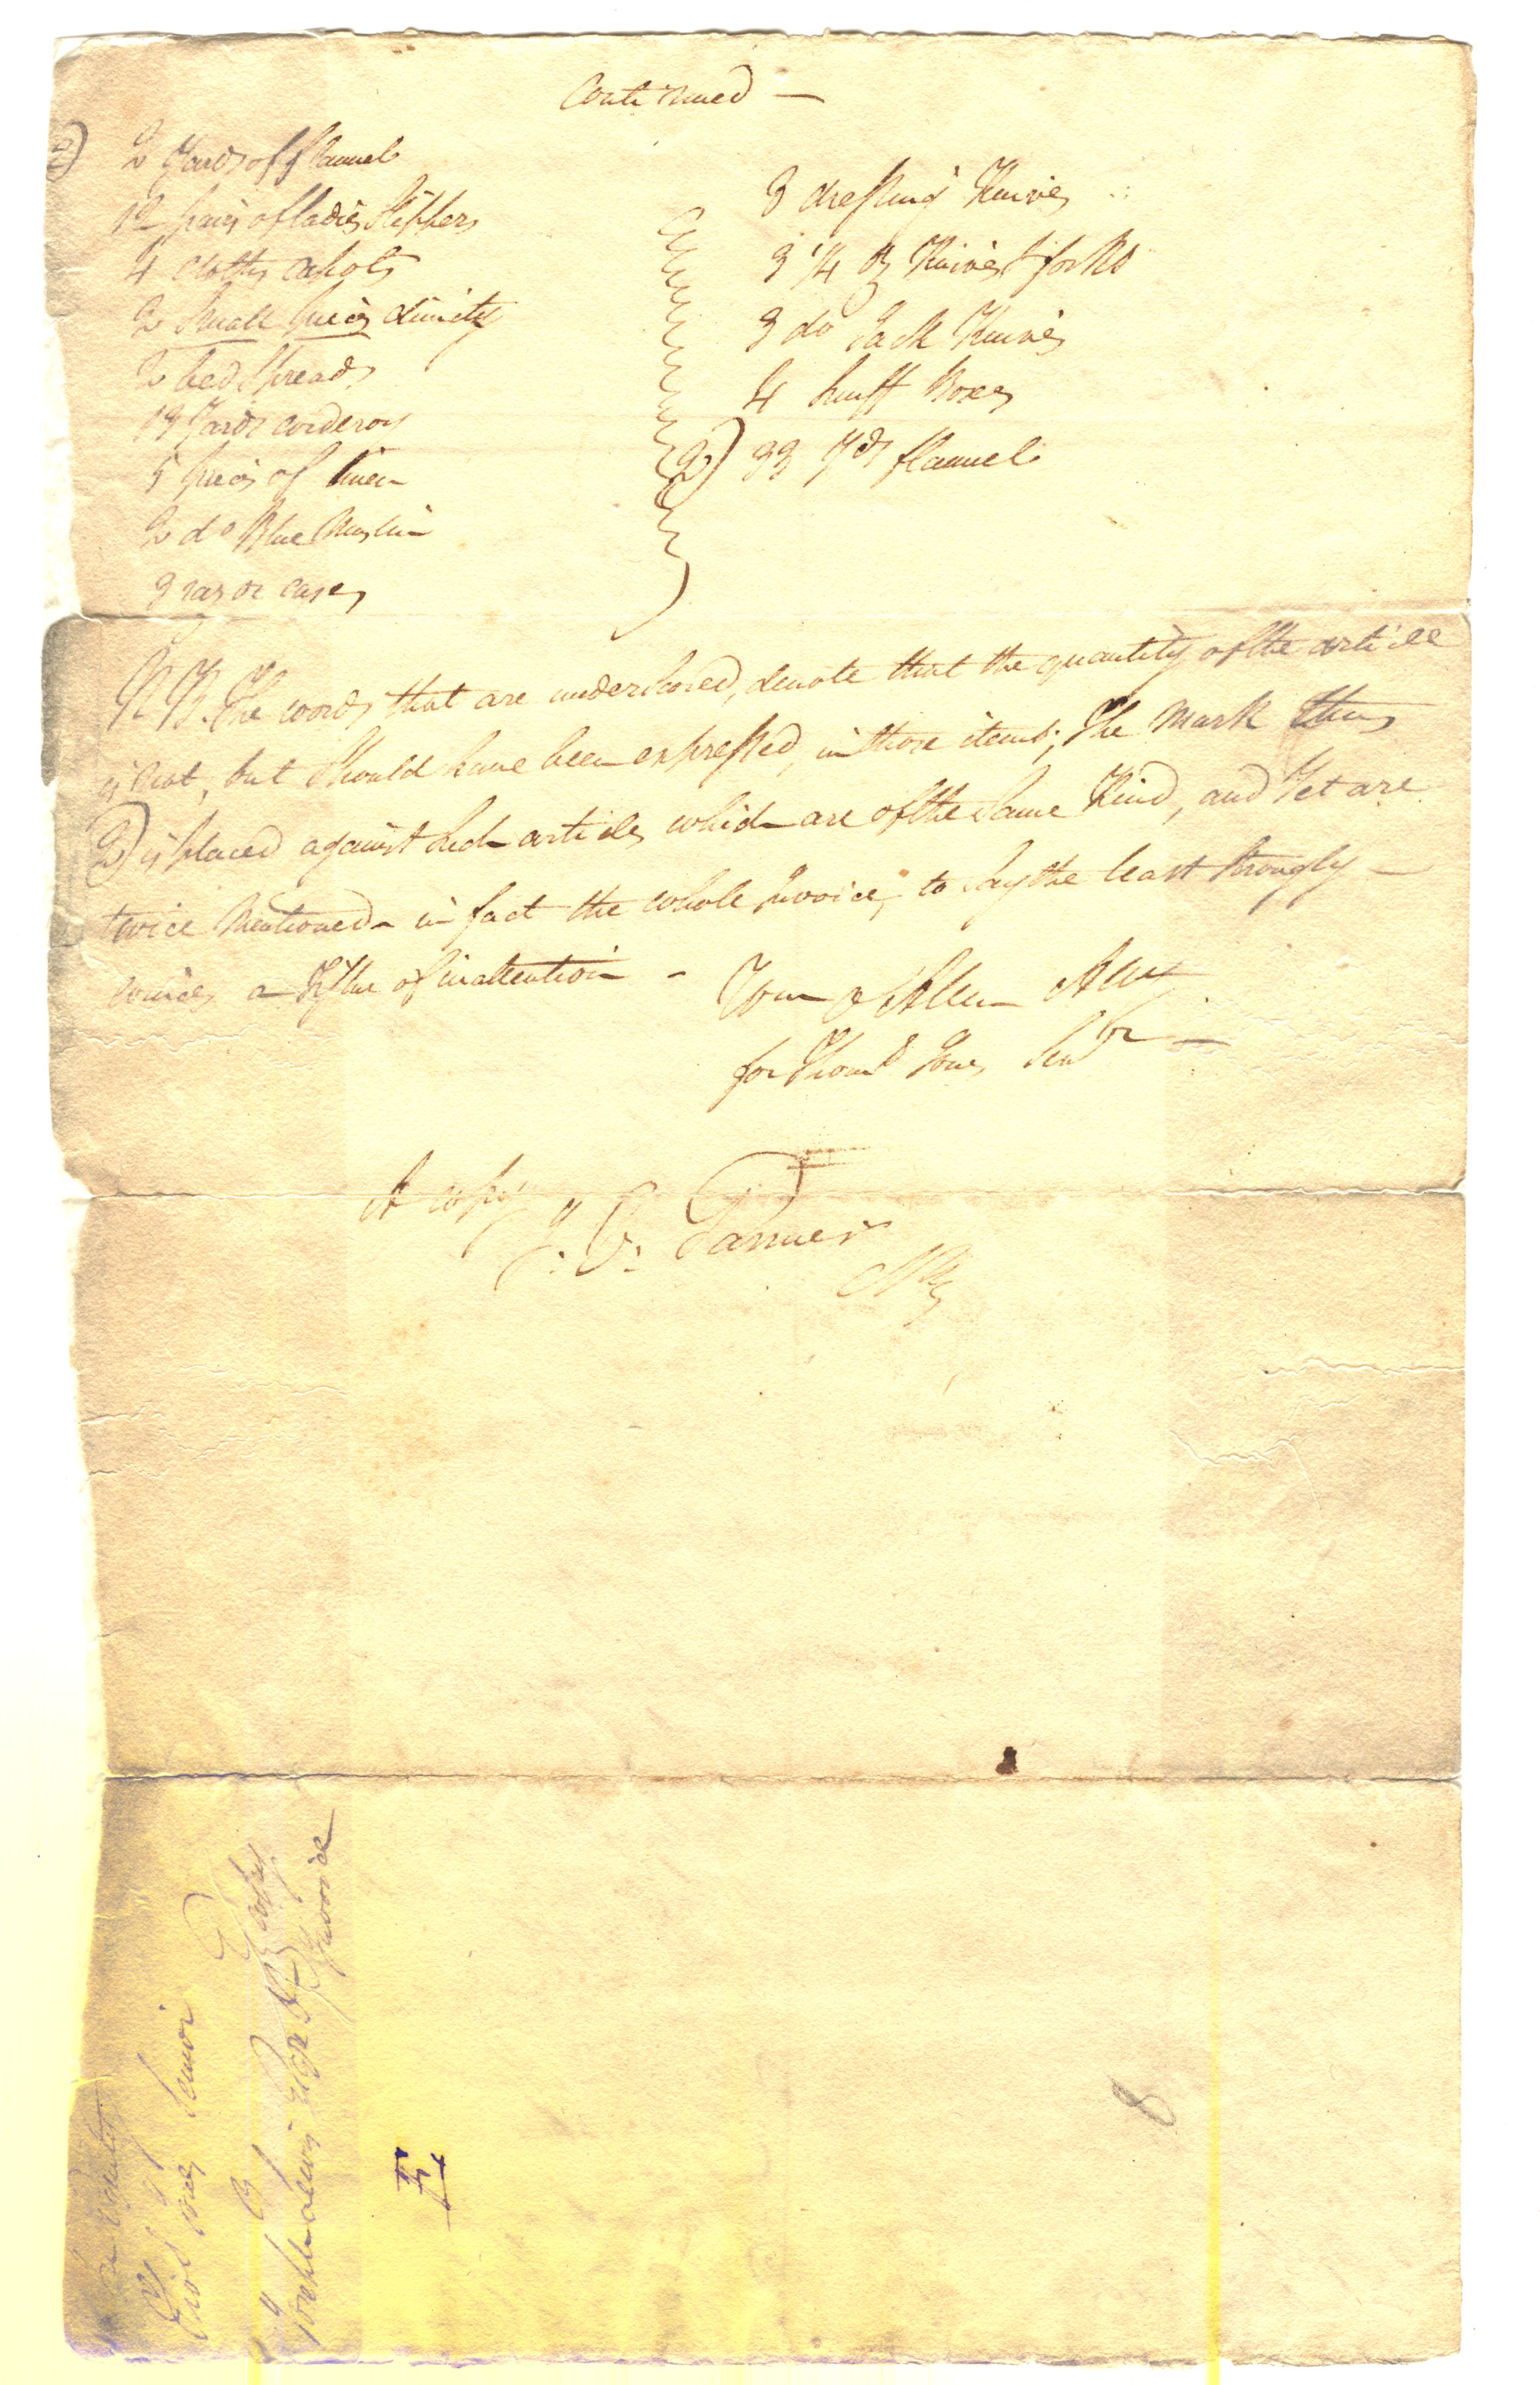 Continued —
2) 2 Yards of flannel
12 pairs of ladies Slippers
4 cloths
2 Small pieces dimity
2 bed Spreads
19 Yards corderoy
5 pieces of linen
2 do Blue Muslin
3 razor cases
3 dressing Knives
3 1/4 Dz Knives & forks
3 do Jack Knives
4 Snuff Boxes
2) 33 Yds flannel
N B. The words that are underscored, denote that the quantity of the article
is not, but should have been expressed, in those items; The mark thus
2) is placed against such articles which are of the same Kind, and Yet are
twice mentioned - in fact the whole Invoice, to Say the least strongly —
evinces a of inattention -
Allen Atty
for Thoms Jones Senr —
A copy
Senior
Copy
Invoice
8